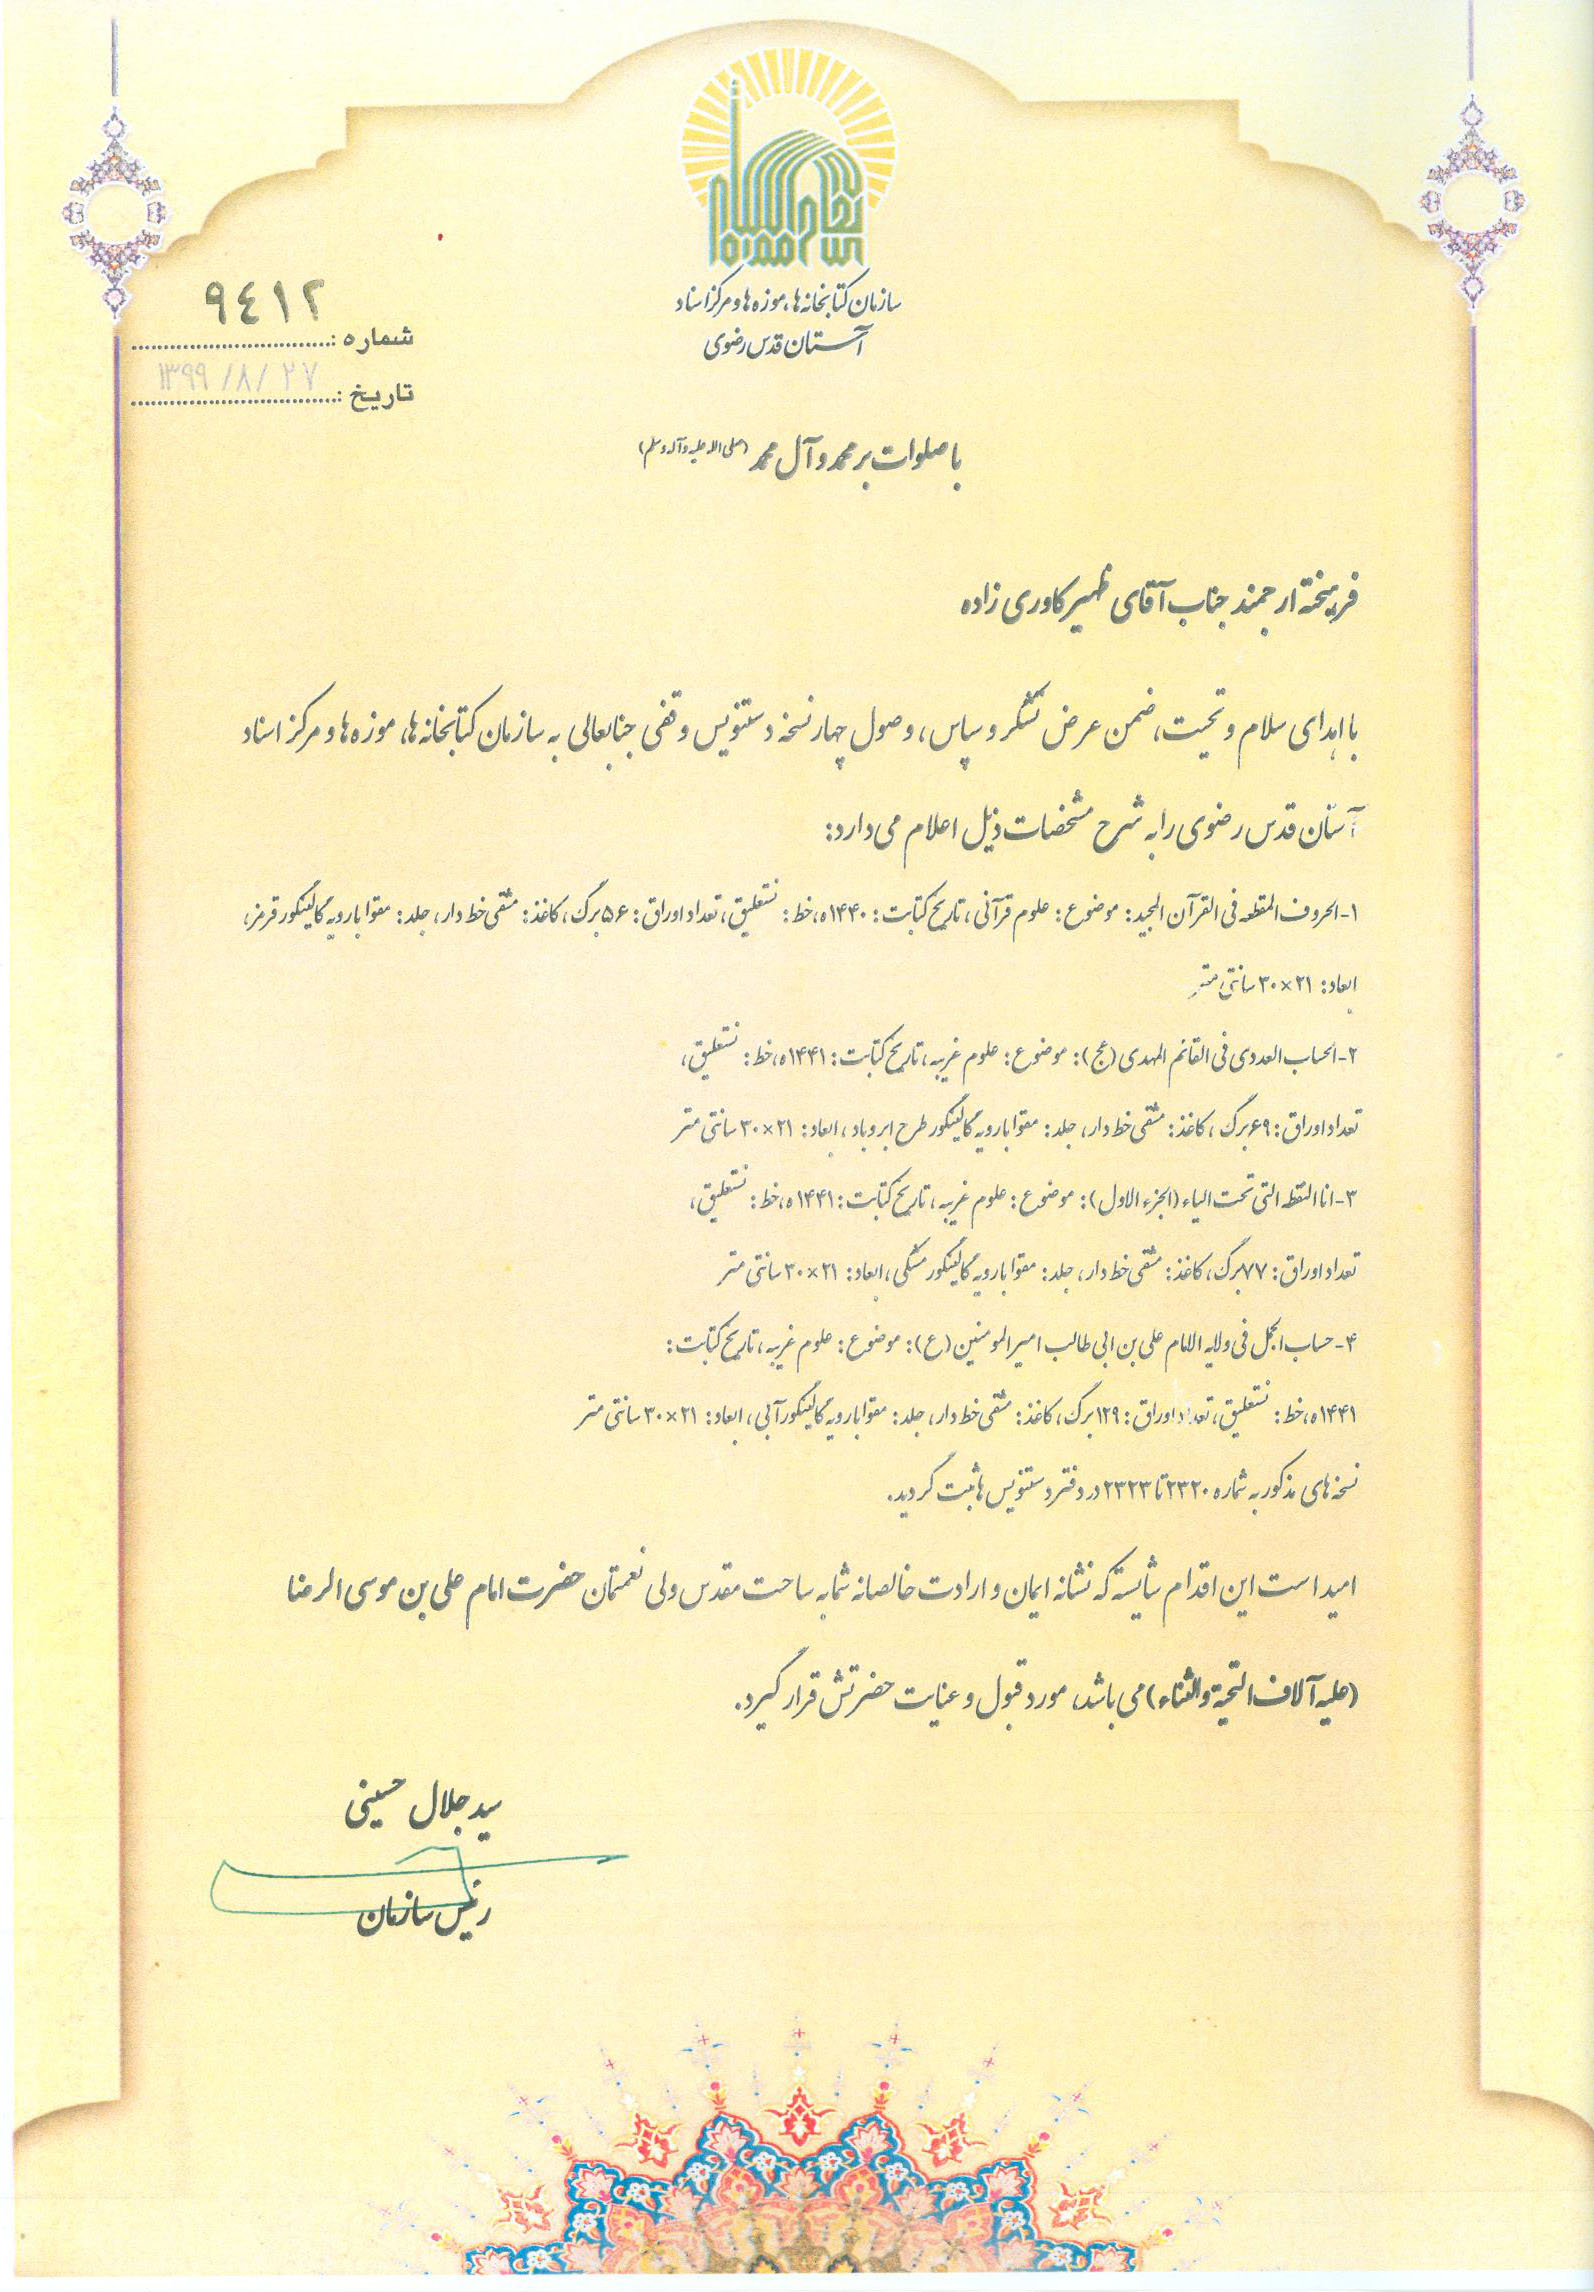 سازمان کتابخانه‌ها، موزه‌ها و مرکز اسناد
آستان قدس رضوی
شماره: ۹٤۱۲
تاریخ: ۱۳۹۹/۸/۲۷
با صلوات بر محمد و آل محمد (صلی الله علیه و آله و سلم)
فرهیخته ارجمند جناب آقای ظهیر کاوری زاده
با اهدای سلام و تحیت، ضمن عرض تشکر و سپاس، وصول چهار نسخه دستنویس وقفی جنابعالی به سازمان کتابخانه‌ها، موزه‌ها و مرکز اسناد
آستان قدس رضوی را به شرح مشخصات ذیل اعلام می‌دارد:
۱- الحروف المقطعه فی القرآن المجید: موضوع: علوم قرآنی، تاریخ کتابت: ۱۴۴۰ه، خط: نستعلیق، تعداد اوراق: ۵۶ برگ، کاغذ: مشقی خط دار، جلد: مقوا با رویه گالینگور قرمز،
ابعاد: ۲۱×۳۰ سانتی متر
۲- الحساب العددی فی القائم المهدی (عج): موضوع: علوم غریبه، تاریخ کتابت: ۱۴۴۱ه، خط: نستعلیق،
تعداد اوراق: ۶۹ برگ، کاغذ: مشقی خط دار، جلد: مقوا با رویه گالینگور طرح ابر و باد، ابعاد: ۲۱×۳۰ سانتی متر
۳- انا النقطه التی تحت الباء (الجزء الاول): موضوع: علوم غریبه، تاریخ کتابت: ۱۴۴۱ه، خط: نستعلیق،
تعداد اوراق: ۷۷ برگ، کاغذ: مشقی خط دار، جلد: مقوا با رویه گالینگور مشکی، ابعاد: ۲۱×۳۰ سانتی متر
۴- حساب الجمل فی ولایه الامام علی بن ابی طالب امیرالمومنین (ع): موضوع: علوم غریبه، تاریخ کتابت:
۱۴۴۱ه، خط: نستعلیق، تعداد اوراق: ۱۲۹ برگ، کاغذ: مشقی خط دار، جلد: مقوا با رویه گالینگور آبی، ابعاد: ۲۱×۳۰ سانتی متر
نسخه‌های مذکور به شماره ۲۳۲۰ تا ۲۳۲۳ در دفتر دستنویس ها ثبت گردید.
امید است این اقدام شایسته که نشانه ایمان و ارادت خالصانه شما به ساحت مقدس ولی نعمتمان حضرت امام علی بن موسی الرضا
(علیه آلاف التحیة والثناء) می باشد، مورد قبول و عنایت حضرتش قرار گیرد.
سید جلال حسینی
رئیس سازمان